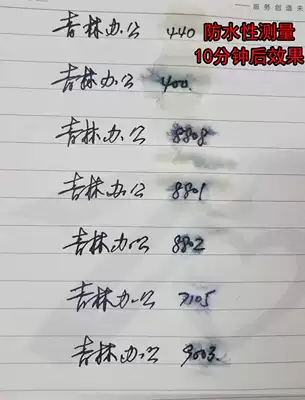 服务创造未
防水性测量
10分钟后效果
吉林办公 440
吉林办公 400.
吉林办公 8808
吉林办公 8801
吉林办公 8802
吉林办公 7105
吉林办公 9003.